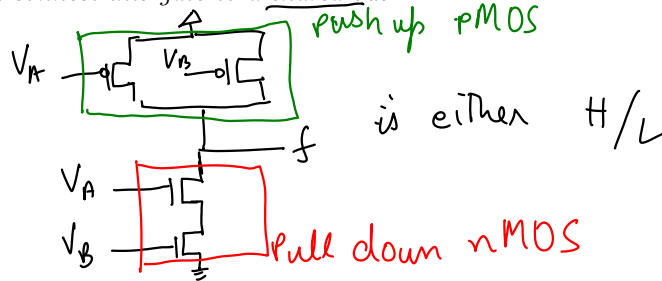 push up pMOS
V_A
V_B
is either H/L
f
V_A
V_B
Pull down nMOS